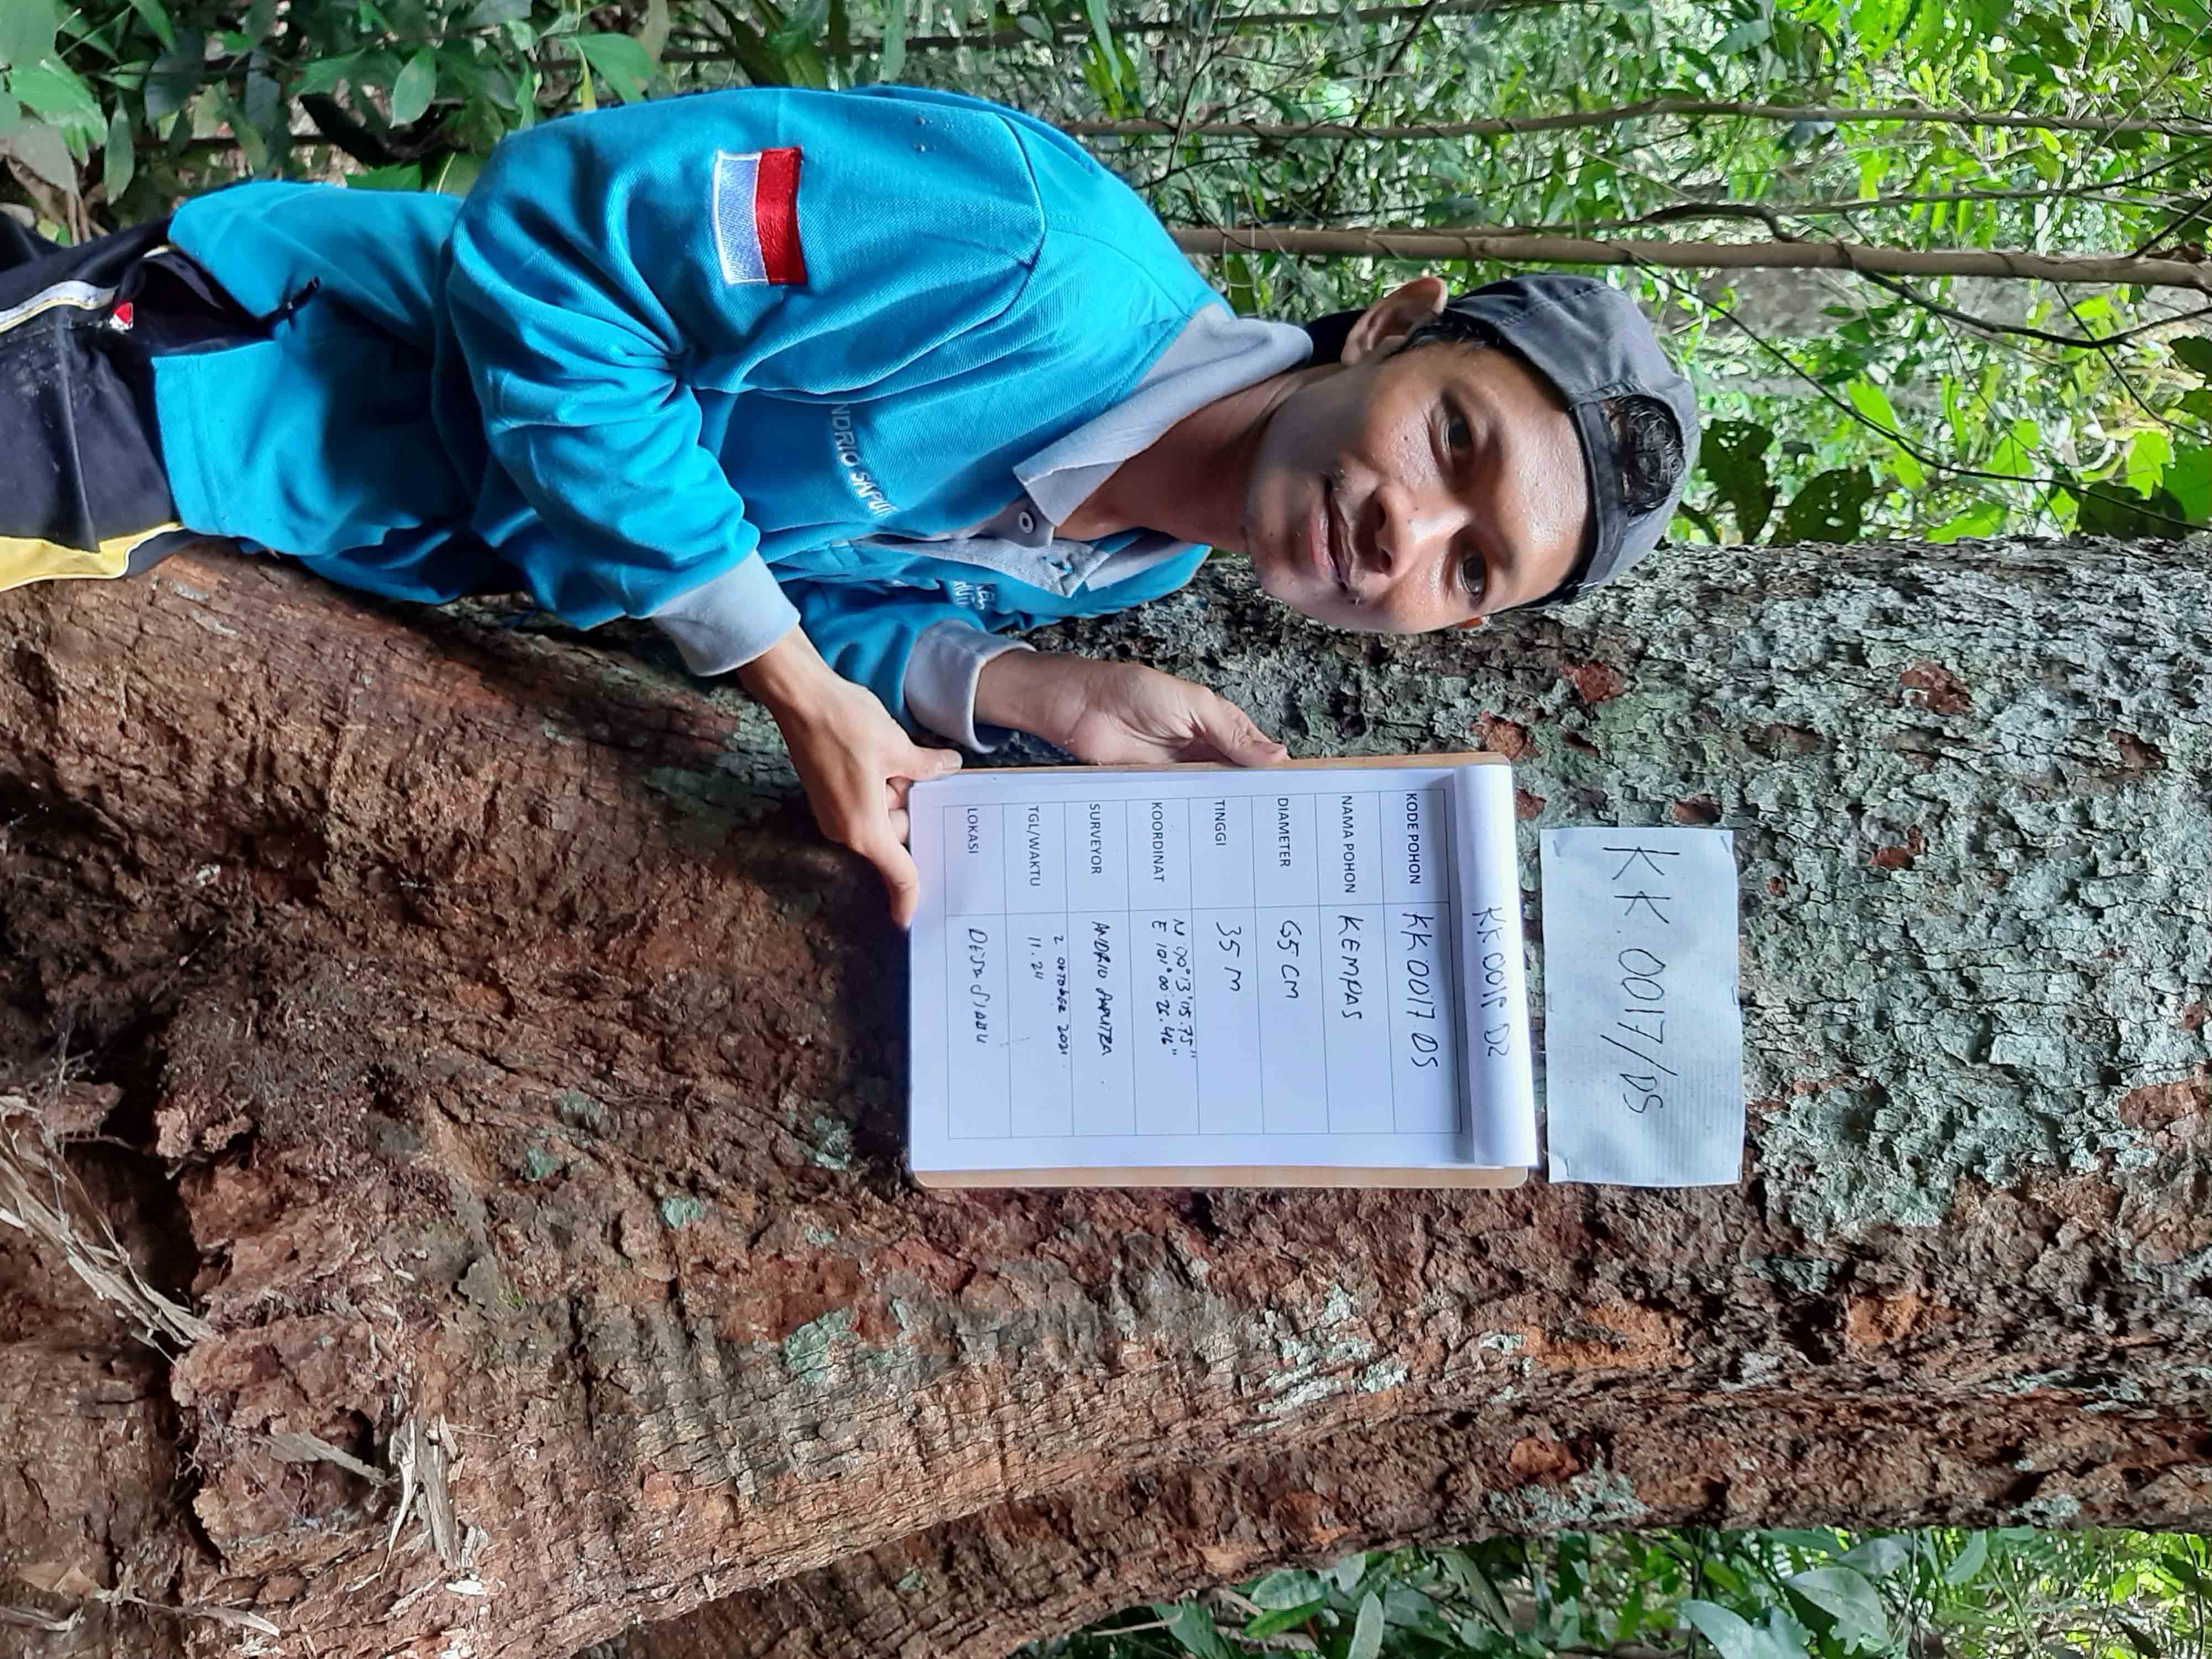 KK 0017/DS
KODE POHON KK 0017 DS
NAMA POHON KEMPAS
DIAMETER 65 CM
TINGGI 35 M
KOORDINAT N 00°13'05.75"
E 101°00'26.46"
SURVEYOR ANDRIO SAPUTRA
TGL/WAKTU 2 OKTOBER 2021
11.24
LOKASI
NDRIO SAPU